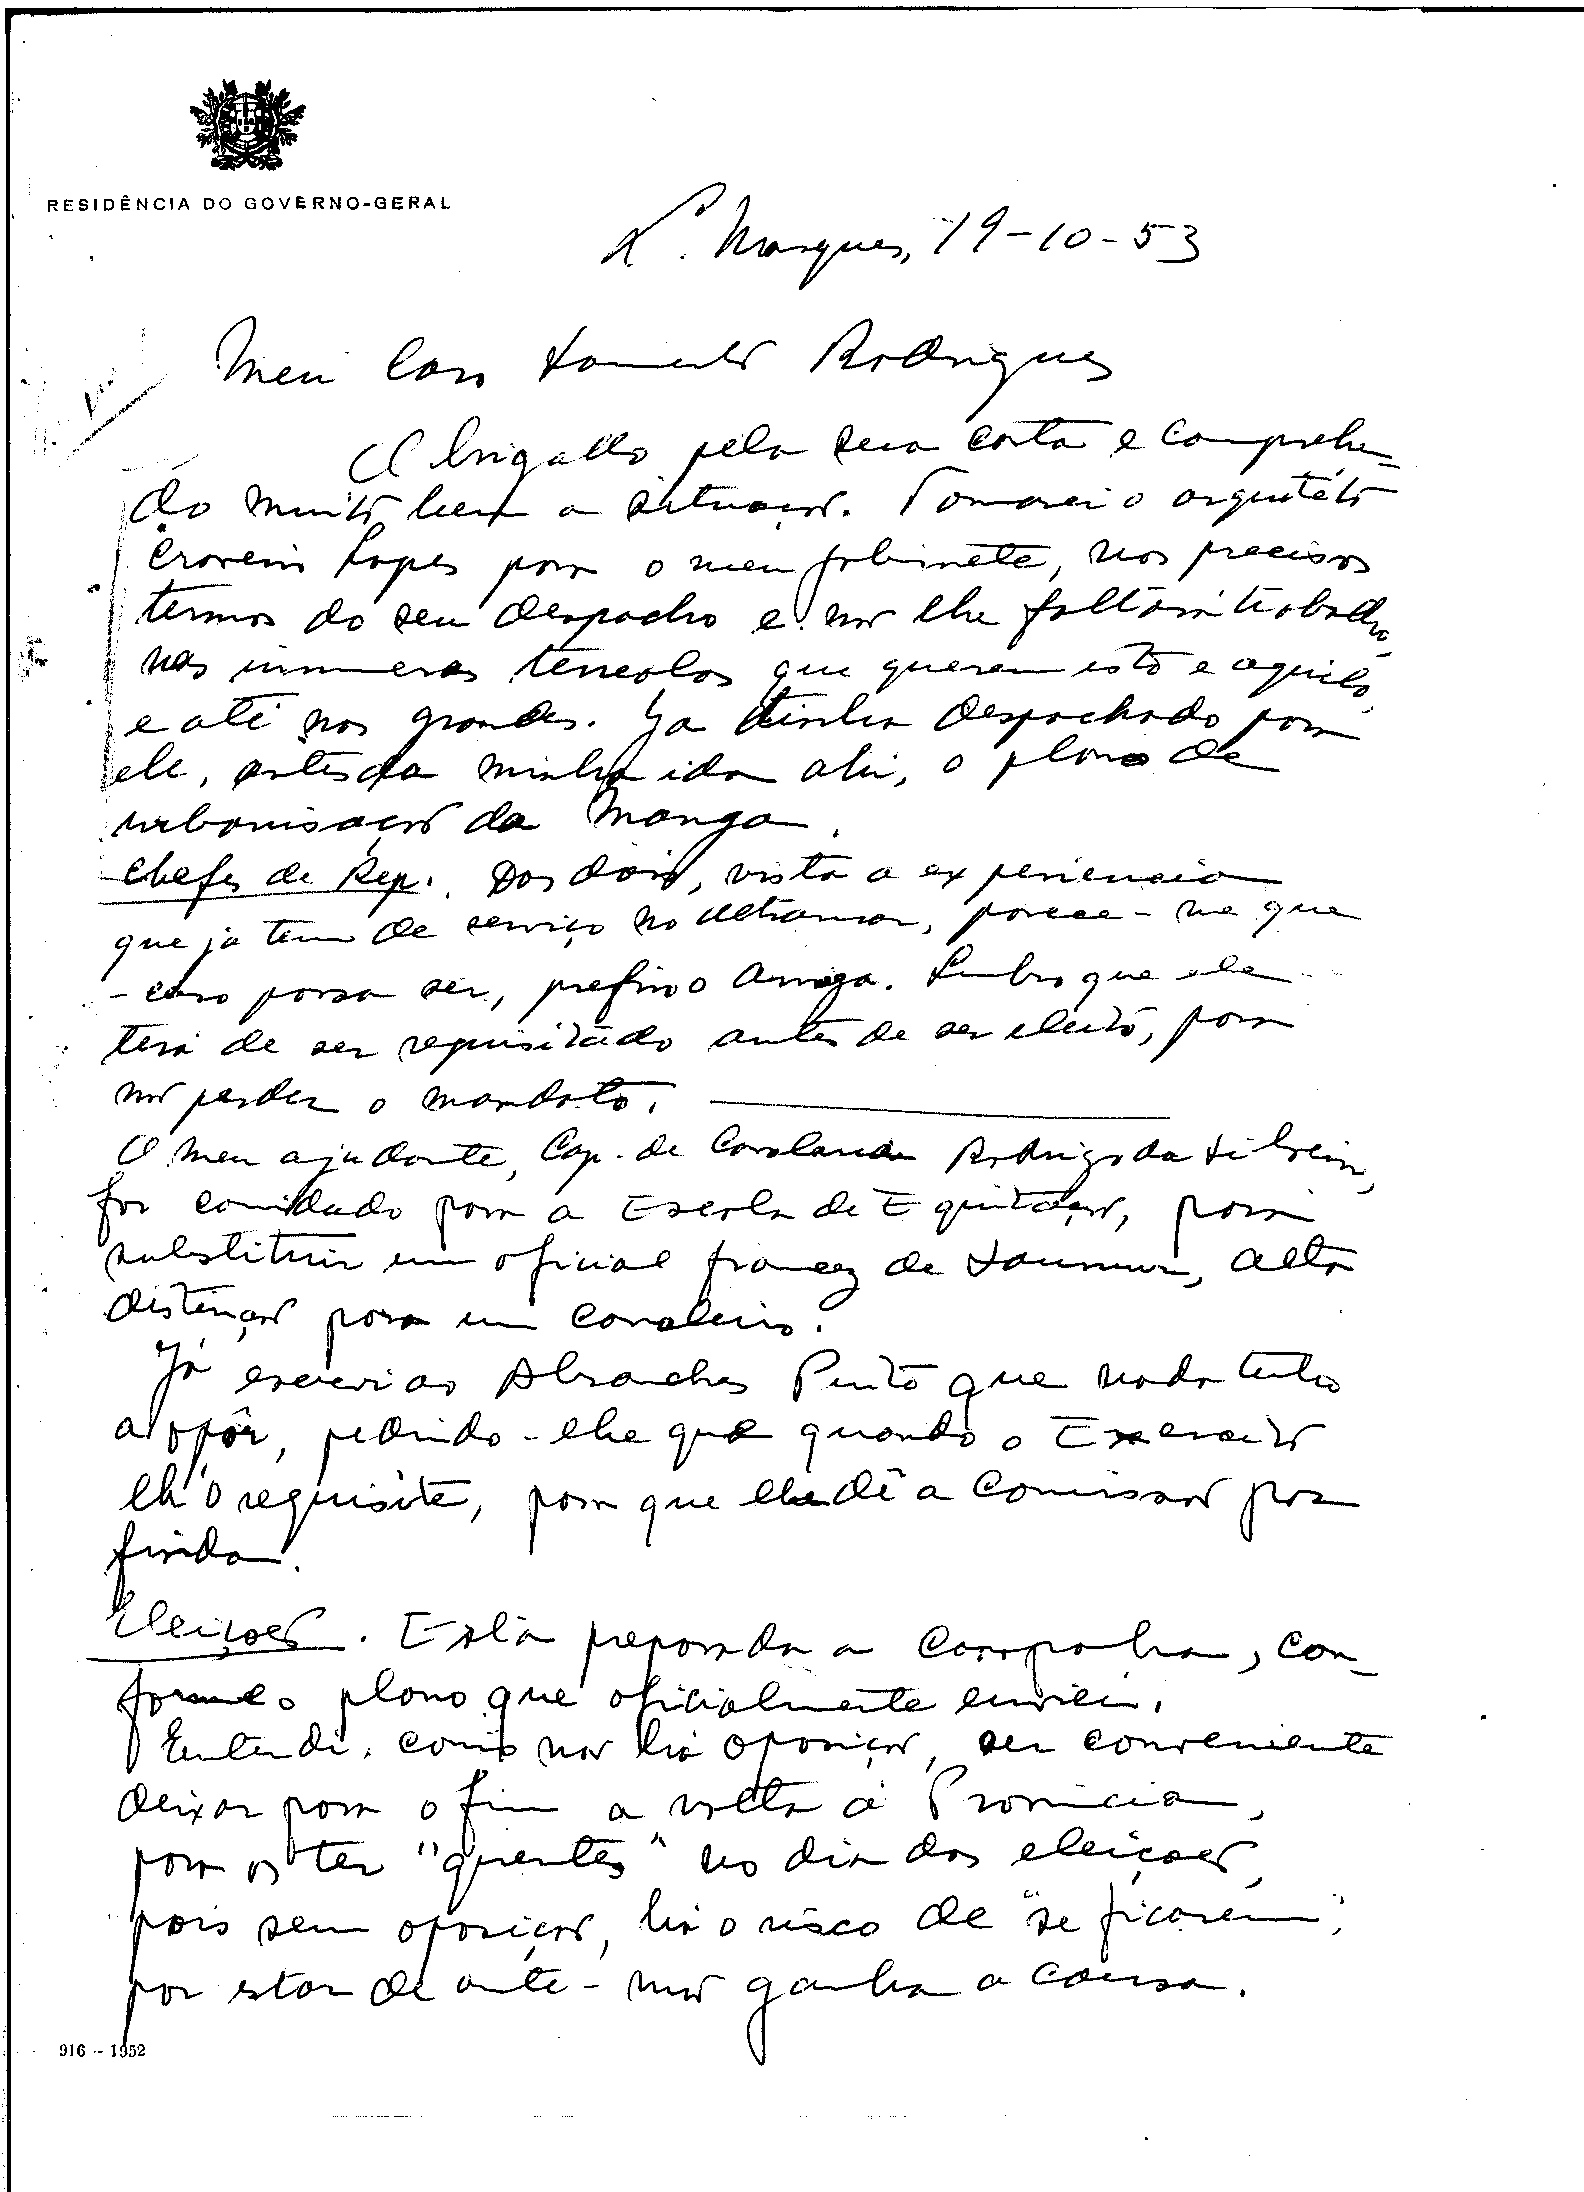 RESIDÊNCIA DO GOVERNO-GERAL
L. Marques, 19-10-53
Meu Caro Sarmento Rodrigues
Obrigado pela sua carta e comprehen-
do muito bem a situação. Tomarei o arquitéto
Craveiro Lopes para o meu gabinete, nos precisos
termos do seu despacho e não lhe faltará trabalho,
nas inumeras que querem isto e aquilo,
e até nos grandes. Ja tinha despachado para
ele, antes da minha ida ahi, o plano de
urbanisação da Manga.
Chefes de Rep. Dos dois, vista a experiencia
que ja tem de serviço no Ultramar, parece-me que
- caso possa ser, prefiro o Arriaga. Lembro que ele
terá de ser requisitado antes de ser eleito, para
não perder o mandato.
O meu ajudante, Cap. de Cavalaria Rodrigo da Silveira,
foi convidado para a Escola de Equitação, para
substituir um oficial francez de Saumur, alta
distinção para um cavaleiro.
Já escrevi ao Abranches Pinto que nada tenho
a opôr, pedindo-lhe que quando o Exercito
lh'o requisite, para que lhe dê a comissão por
finda.
Eleições. Está preparada a campanha, con-
forme o plano que oficialmente enviei.
Entendi, como não há oposição, ser conveniente
deixar para o fim a volta á Provincia,
para os ter "quentes" no dia das eleições,
pois sem oposição, há o risco de "se ficarem",
por estar de ante-mão ganha a causa.
916 -- 1952